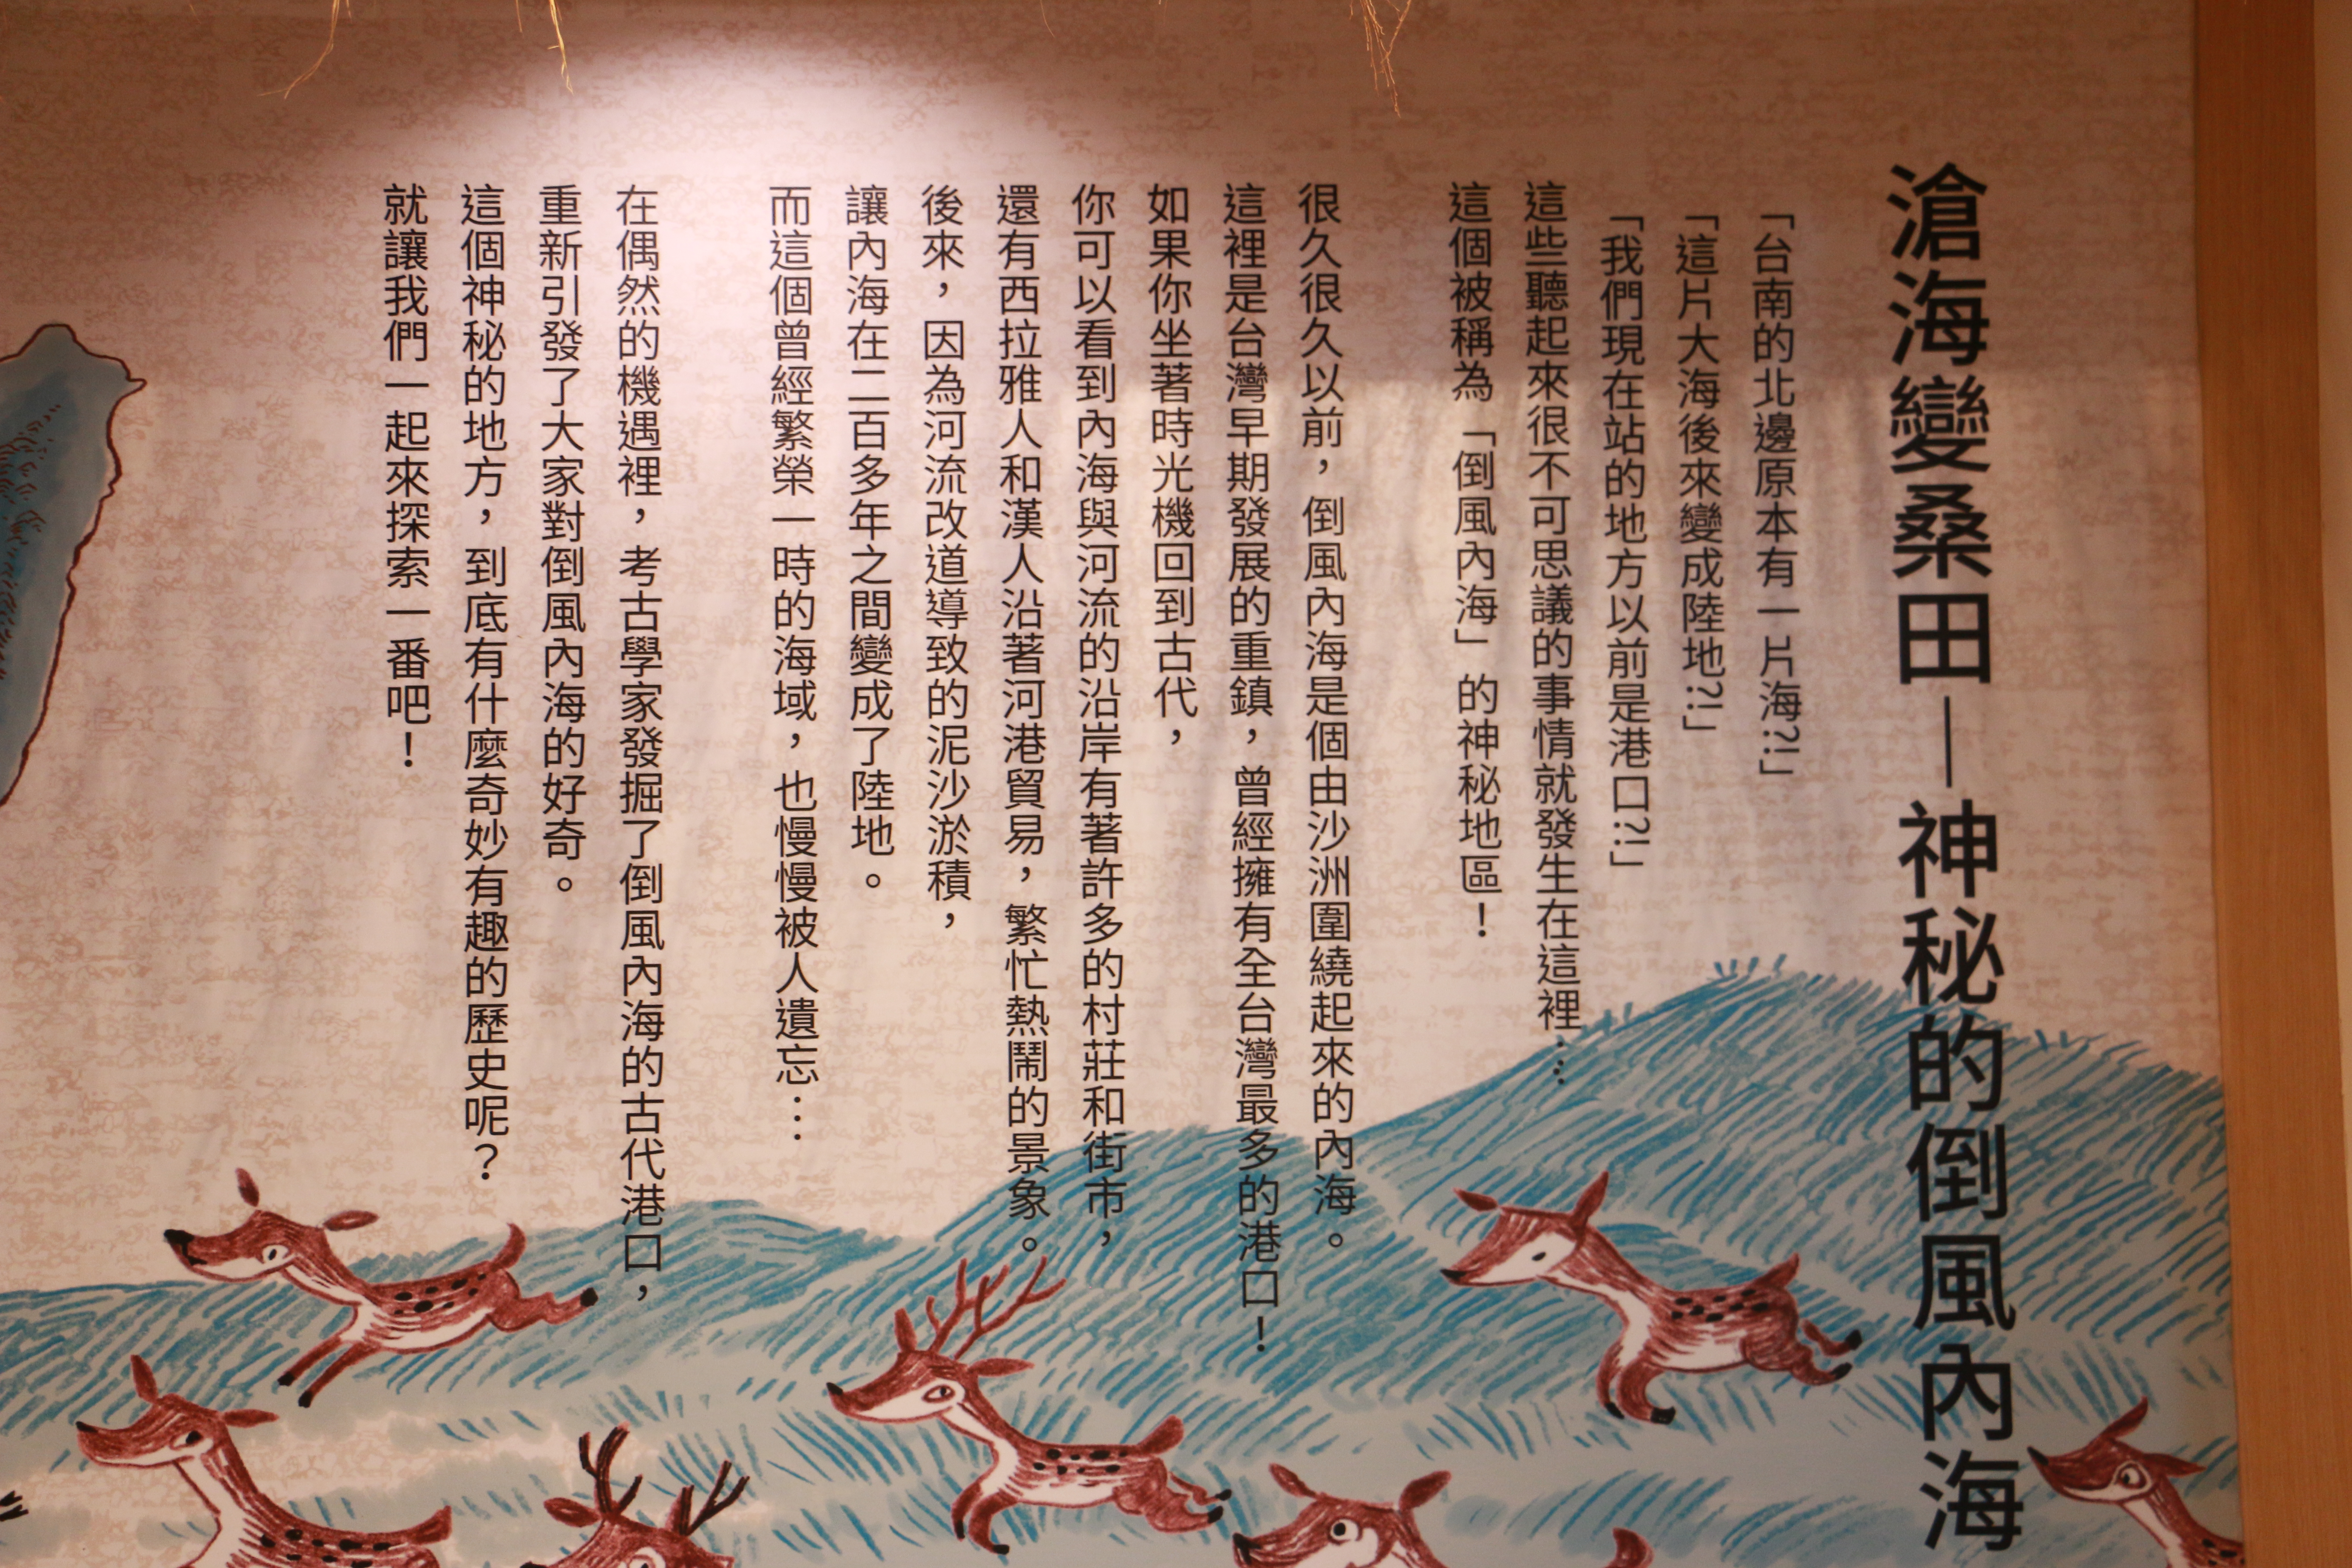 滄海變桑田—神秘的倒風內海
「台南的北邊原本有一片海?!」
「這片大海後來變成陸地?!」
「我們現在站的地方以前是港口?!」
這些聽起來很不可思議的事情就發生在這裡…
這個被稱為「倒風內海」的神秘地區！
很久很久以前，倒風內海是個由沙洲圍繞起來的內海。
這裡是台灣早期發展的重鎮，曾經擁有全台灣最多的港口！
如果你坐著時光機回到古代，
你可以看到內海與河流的沿岸有著許多的村莊和街市，
還有西拉雅人和漢人沿著河港貿易，繁忙熱鬧的景象。
後來，因為河流改道導致的泥沙淤積，
讓內海在二百多年之間變成了陸地。
而這個曾經繁榮一時的海域，也慢慢被人遺忘…
在偶然的機遇裡，考古學家發掘了倒風內海的古代港口，
重新引發了大家對倒風內海的好奇。
這個神秘的地方，到底有什麼奇妙有趣的歷史呢？
就讓我們一起來探索一番吧！